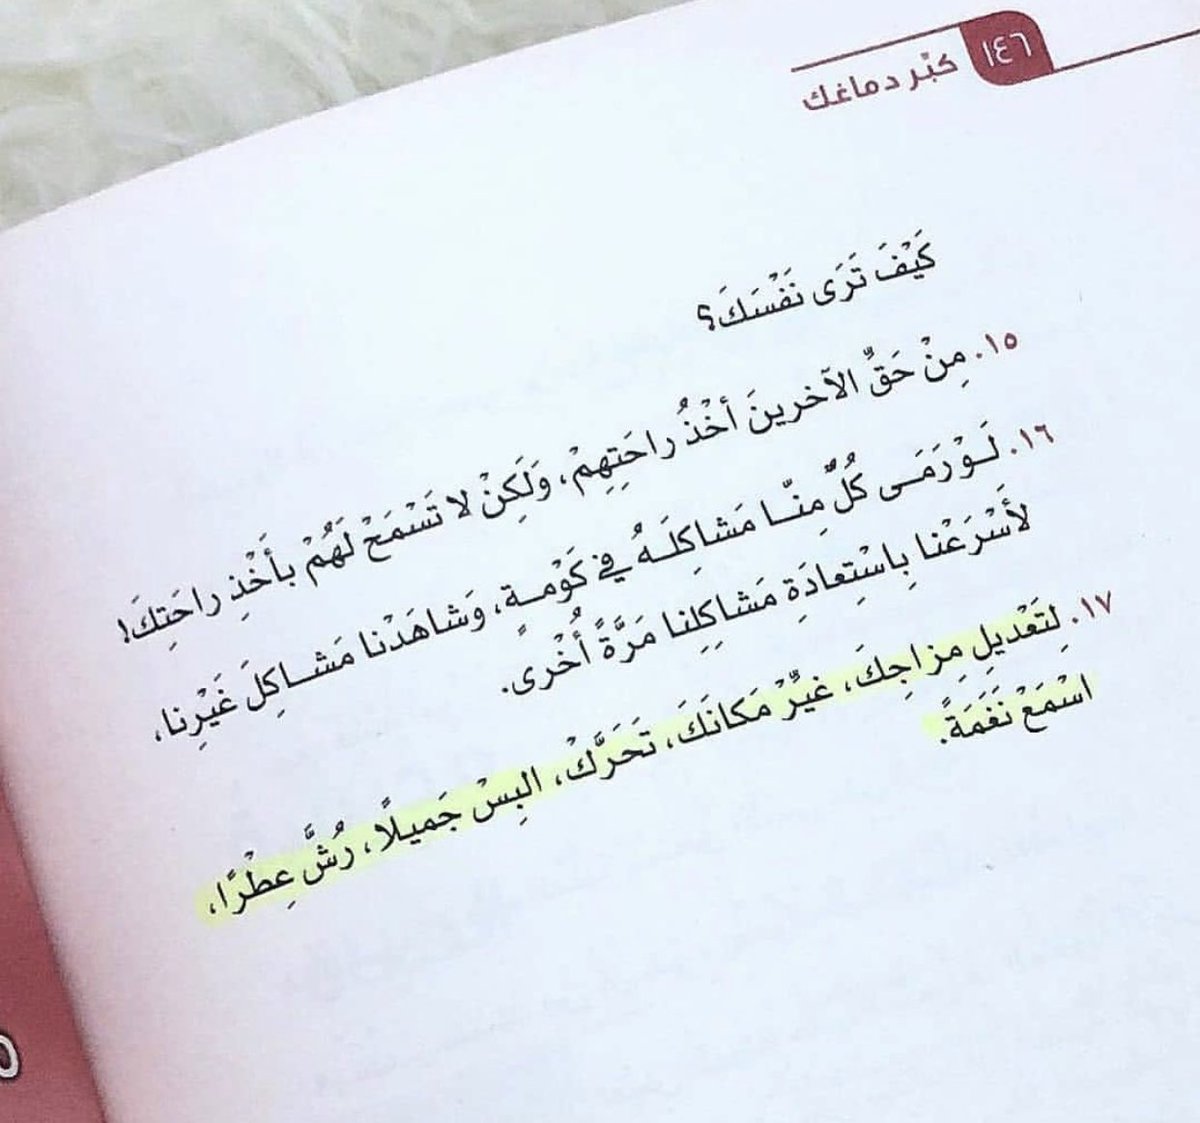 ١٤٦ كبّر دماغك
كَيْفَ تَرَى نَفْسَكَ؟
١٥. مِنْ حَقِّ الآخرينَ أخْذُ راحَتِهِمْ، وَلَكِنْ لا تَسْمَحْ لَهُمْ بأَخْذِ راحَتِكَ!
١٦. لَوْ رَمَى كُلٌّ مِنّا مَشاكِلَهُ في كَوْمةٍ، وَشاهَدْنا مَشاكِلَ غَيْرِنا،
لأَسْرَعْنا بِاسْتِعادَةِ مَشاكِلِنا مَرَّةً أُخْرى.
١٧. لِتَعْديلِ مِزاجِكَ، غيِّرْ مَكانَكَ، تَحَرَّكْ، البِسْ جَميلًا، رُشَّ عِطْرًا،
اسْمَعْ نَغَمَةً.